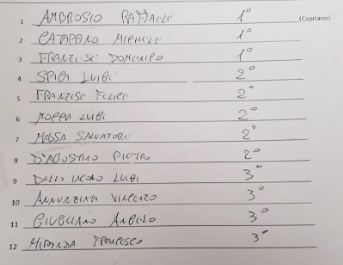 1 AMBROSIO RAFFAELE 1° (Capitano)
2 CATAPANO MICHELE 1°
3 FRANZESE DOMENICO 1°
4 LUIGI 2°
5 FRANZESE FELICE 2°
6 LUIGI 2°
7 MASSA SALVATORE 2°
8 D'AGOSTINO PIETRO 2°
9 LUIGI 3°
10 ANNUNZIATA VINCENZO 3°
11 GIUGLIANO ANGELO 3°
12 MIRANDA FRANCESCO 3°